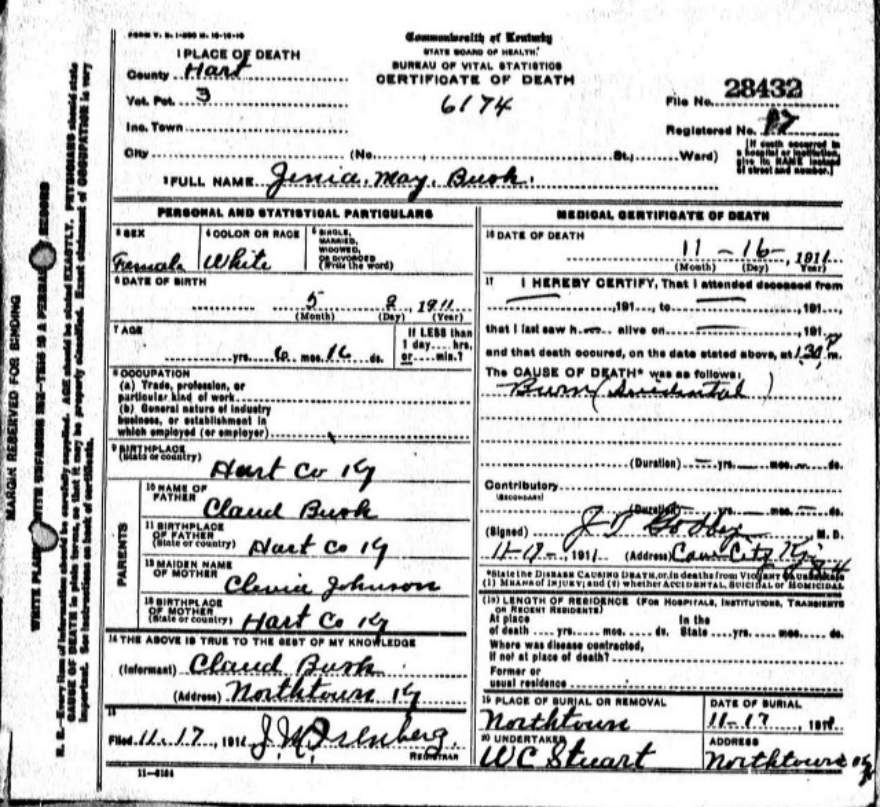 FORM V. S. 1-
Commonwealth of Kentucky
STATE BOARD OF HEALTH.
BUREAU OF VITAL STATISTICS
CERTIFICATE OF DEATH
6174
1 PLACE OF DEATH
County Hart
Vot. Pct. 3
Inc. Town
City (No. , St.; Ward)
File No. 28432
Registered No.
[If death occurred in a hospital or institution, give its NAME instead of street and number.]
2 FULL NAME Jenia. May. Bush.
PERSONAL AND STATISTICAL PARTICULARS
3 SEX
Female
4 COLOR OR RACE
White
5 SINGLE, MARRIED, WIDOWED, OR DIVORCED (Write the word)
6 DATE OF BIRTH
5 9 1911
(Month) (Day) (Year)
7 AGE
yrs. 6 mos. 16 ds.
If LESS than 1 day.... hrs. or.... min.?
8 OCCUPATION
(a) Trade, profession, or
particular kind of work
(b) General nature of industry
business, or establishment in
which employed (or employer)
9 BIRTHPLACE
(State or country) Hart Co Ky
PARENTS
10 NAME OF FATHER
Claud Bush
11 BIRTHPLACE OF FATHER
(State or country) Hart Co Ky
12 MAIDEN NAME OF MOTHER
Johnson
13 BIRTHPLACE OF MOTHER
(State or country) Hart Co Ky
14 THE ABOVE IS TRUE TO THE BEST OF MY KNOWLEDGE
(Informant) Claud Bush
(Address) Northtown Ky
15
Filed 11.17, 1911 J. M. Isenberg.
REGISTRAR
11-6184
MEDICAL CERTIFICATE OF DEATH
16 DATE OF DEATH
11 - 16 -, 1911
(Month) (Day) (Year)
17 I HEREBY CERTIFY, That I attended deceased from
,191 , to ,191 ,
that I last saw h alive on ,191
and that death occured, on the date stated above, at 1.30 P m.
The CAUSE OF DEATH* was as follows:
Burn (Accidental)
(Duration) yrs. mos. ds.
Contributory
(SECONDARY)
(Duration) yrs. mos. ds.
(Signed) M. D.
, 1911 (Address) Cave City Ky
*State the DISEASE CAUSING DEATH, or, in deaths from VIOLENT CAUSES, state
(1) MEANS OF INJURY; and (2) whether ACCIDENTAL, SUICIDAL or HOMICIDAL
(18) LENGTH OF RESIDENCE (FOR HOSPITALS, INSTITUTIONS, TRANSIENTS
OR RECENT RESIDENTS)
At place In the
of death .... yrs. mos. ds. State .... yrs. mos. ds.
Where was disease contracted,
if not at place of death?
Former or
usual residence
19 PLACE OF BURIAL OR REMOVAL
Northtown
DATE OF BURIAL
11-17, 1911
20 UNDERTAKER
W C Stuart
ADDRESS
Northtown Ky
MARGIN RESERVED FOR BINDING
WRITE PLAINLY, WITH UNFADING INK—THIS IS A PERMANENT RECORD
N. B.—Every item of information should be carefully supplied. AGE should be stated EXACTLY. PHYSICIANS should state
CAUSE OF DEATH in plain terms, so that it may be properly classified. Exact statement of OCCUPATION is very
important. See instructions on back of certificate.